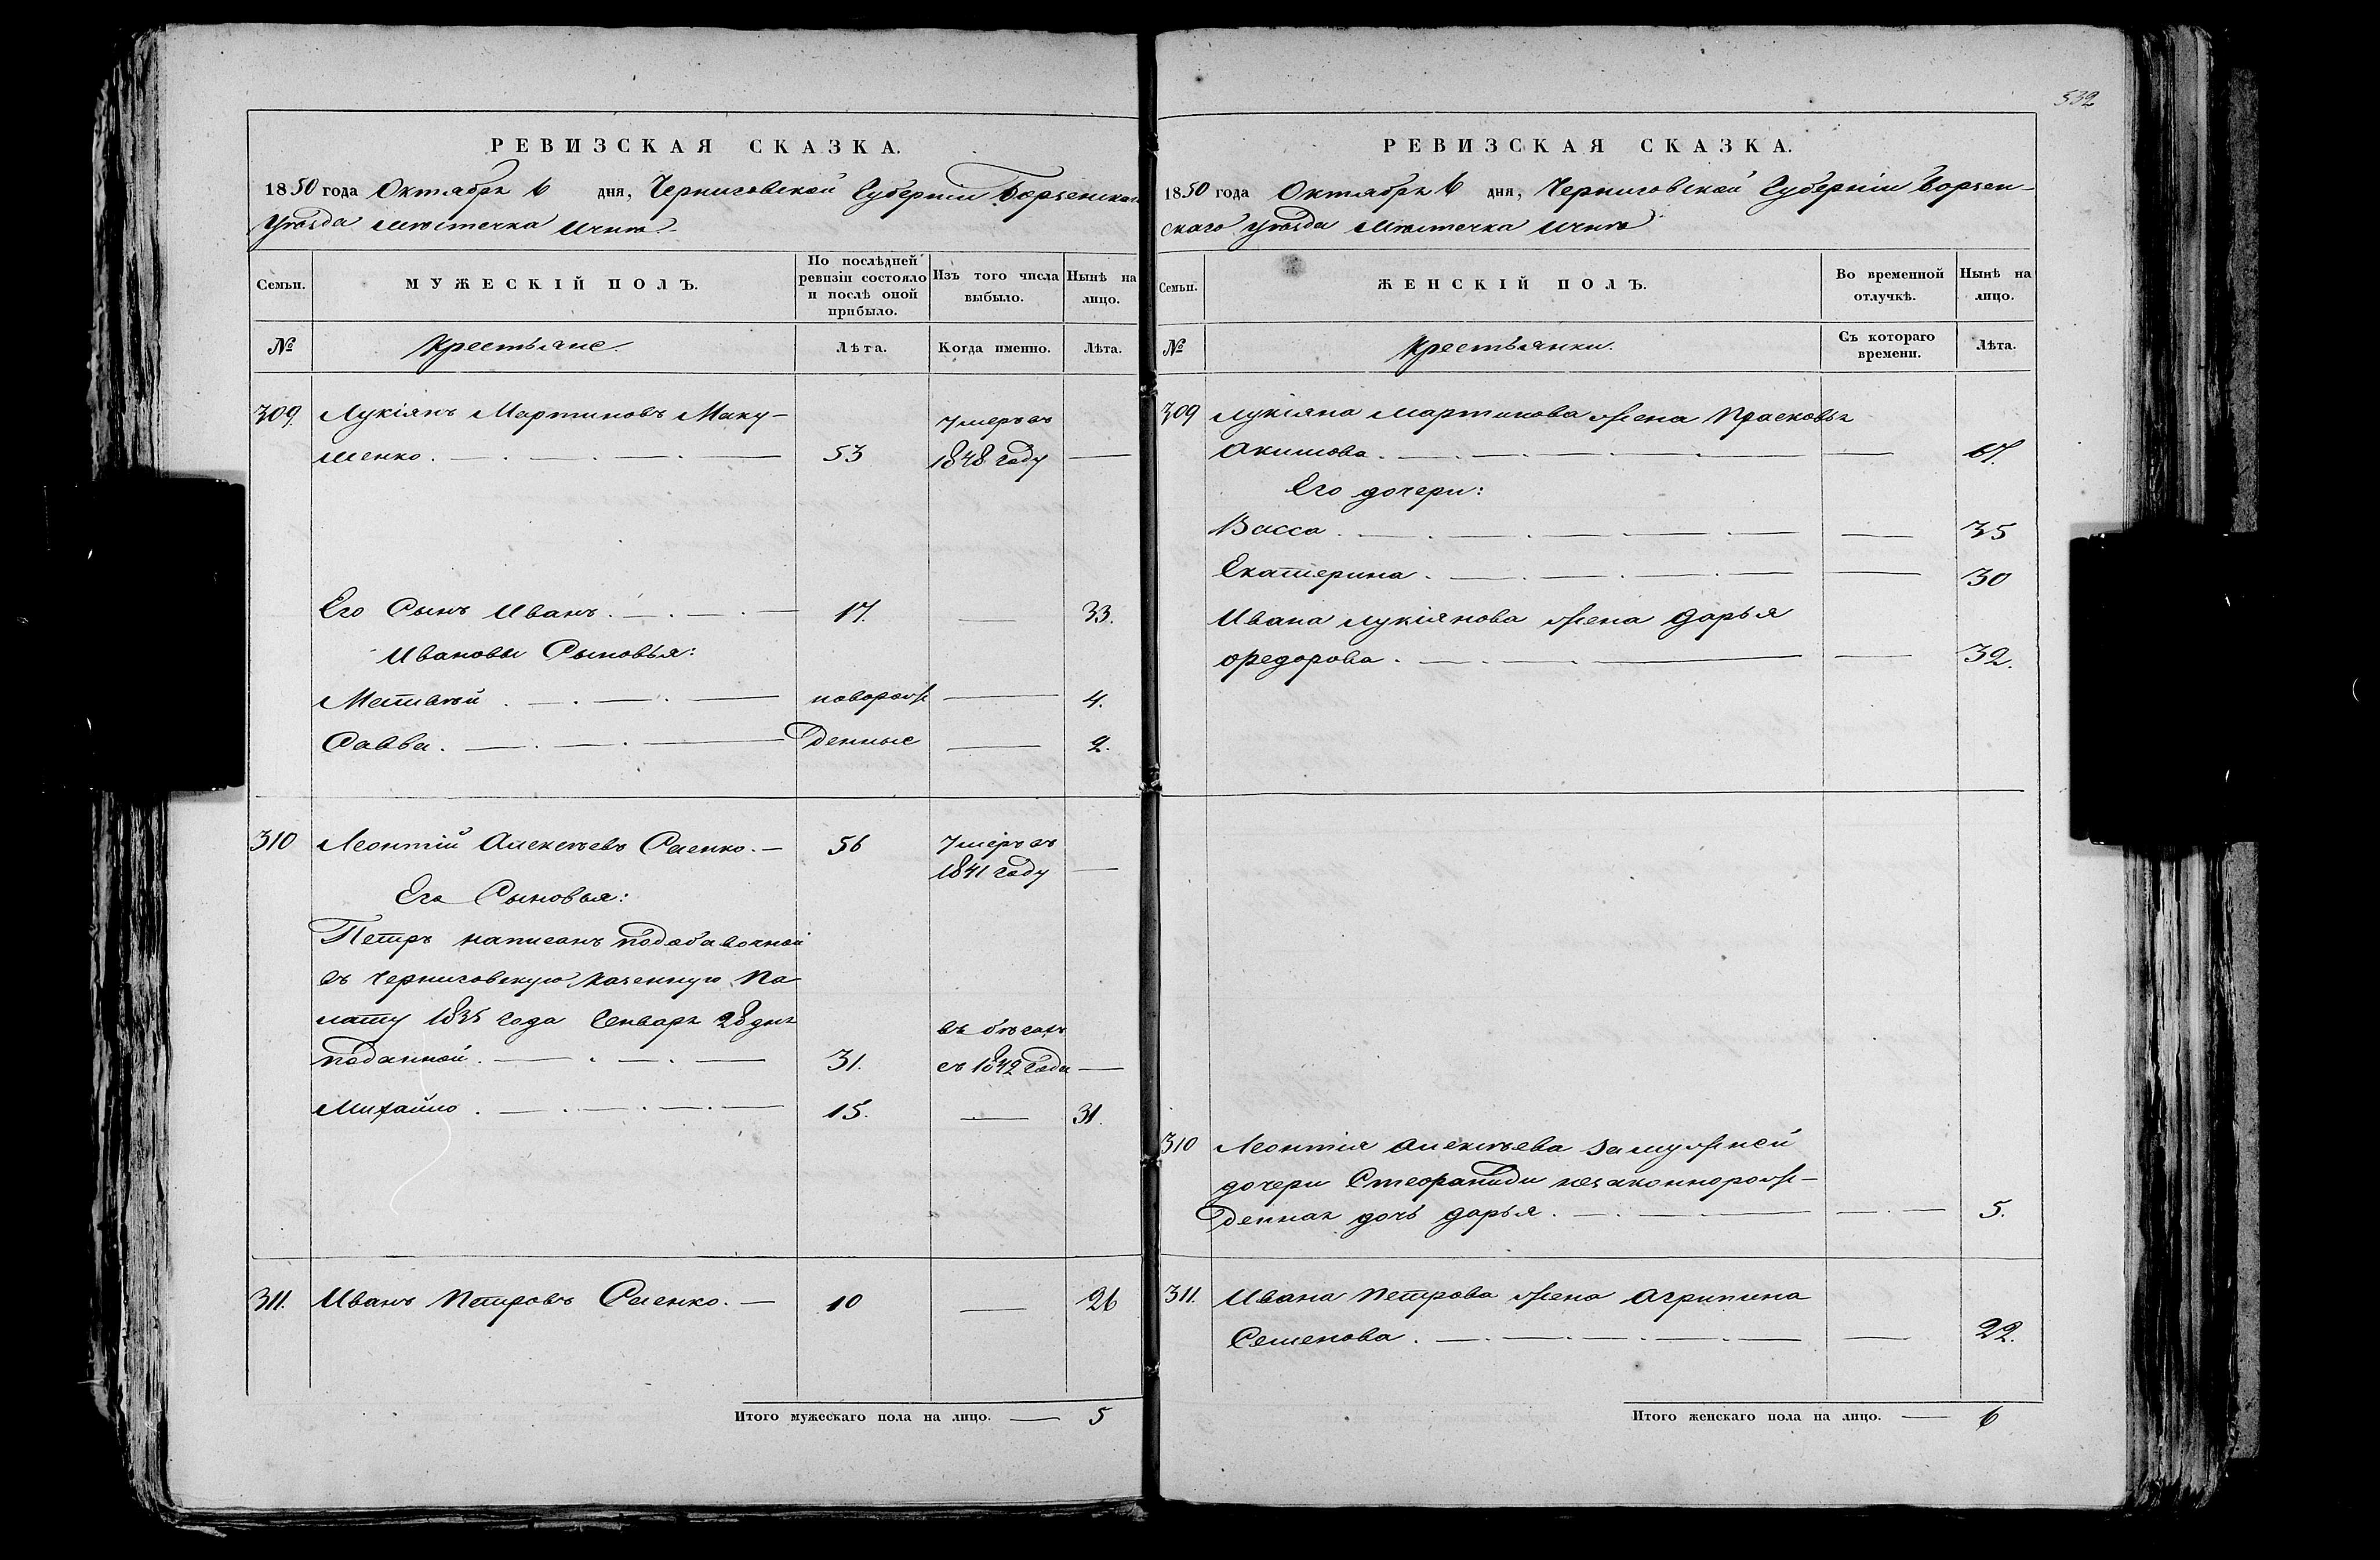 РЕВИЗСКАЯ СКАЗКА.
1850 года Октября 6 дня, Черниговской Губерніи Борзенскаго
Уѣзда Мѣстечка Ични
Семьи.
МУЖЕСКІЙ ПОЛЪ.
По послѣдней ревизіи состояло и послѣ оной прибыло.
Изъ того числа выбыло.
Нынѣ на лицо.
№
Крестьяне.
Лѣта.
Когда именно.
Лѣта.
309. Лукіянъ Мартиновъ Маку-
шенко. 53 Умеръ въ 1848 году
Его Сынъ Иванъ. 17. 33.
Ивановы Сыновья:
Матвѣй новорож 4.
Савва. денные 2.
310 Леонтій Алексѣевъ 56 Умеръ въ
1841 году
Его Сыновья:
Петръ написанъ подобавочной
въ Черниговскую Казенную Па
лату 1835 года Генваря 28 дня въ бѣгахъ
поданной. 31. съ 1842 года
Михайло. 15. 31.
311. Иванъ Петровъ 10 26
Итого мужескаго пола на лицо. 5
532
РЕВИЗСКАЯ СКАЗКА.
1850 года Октября 6 дня, Черниговской Губерніи Борзен-
скаго Уѣзда Мѣстечка Ични
Семьи.
ЖЕНСКІЙ ПОЛЪ.
Во временной отлучкѣ.
Нынѣ на лицо.
№
Крестьянки.
Съ котораго времени.
Лѣта.
309 Лукіяна Мартинова жена Прасковья
Акимова. 67.
Его дочери:
Васса. 35
Екатерина. 30
Ивана Лукіянова жена Дарья
Федорова. 32.
310 Леонтія Алексѣева замужней
дочери Стефаниди незаконнорож-
денная дочь Дарья. 5.
311. Ивана Петрова жена Агрипина
Семенова. 22.
Итого женскаго пола на лицо. 6